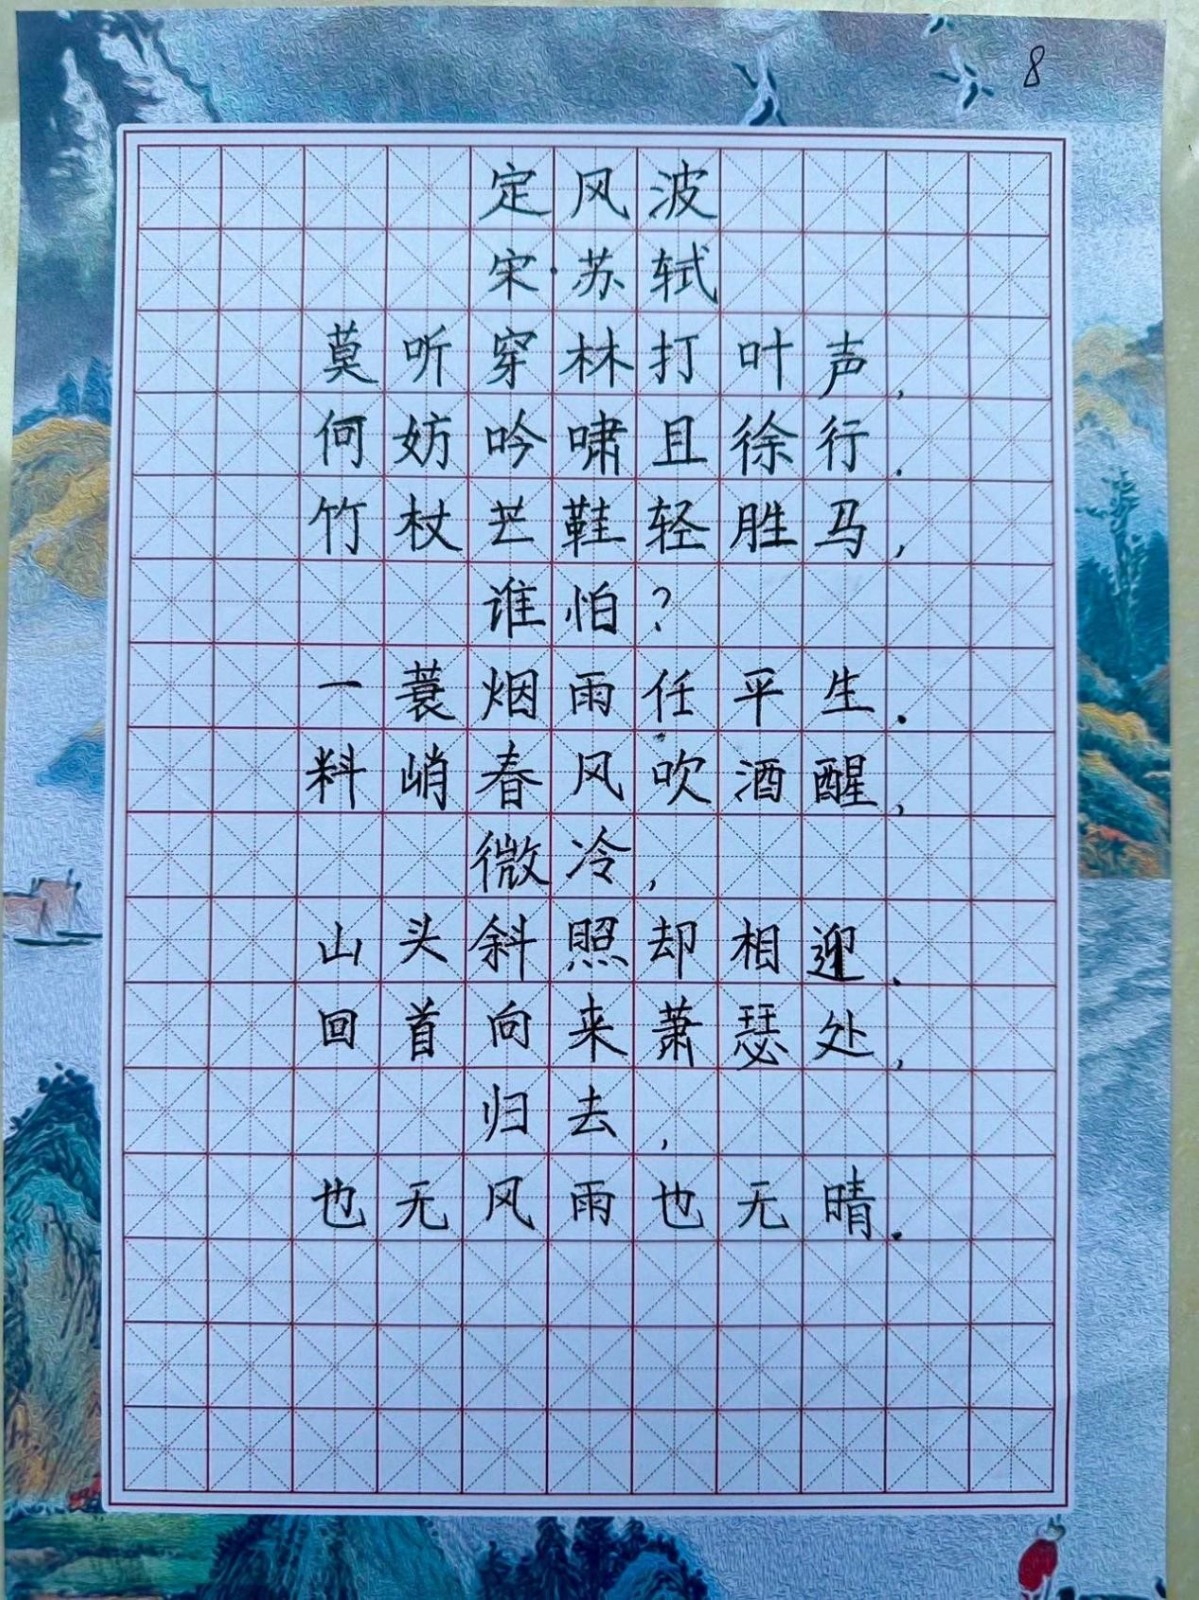 8
定风波
宋·苏轼
莫听穿林打叶声,
何妨吟啸且徐行.
竹杖芒鞋轻胜马,
谁怕?
一蓑烟雨任平生.
料峭春风吹酒醒,
微冷,
山头斜照却相迎.
回首向来萧瑟处,
归去,
也无风雨也无晴.